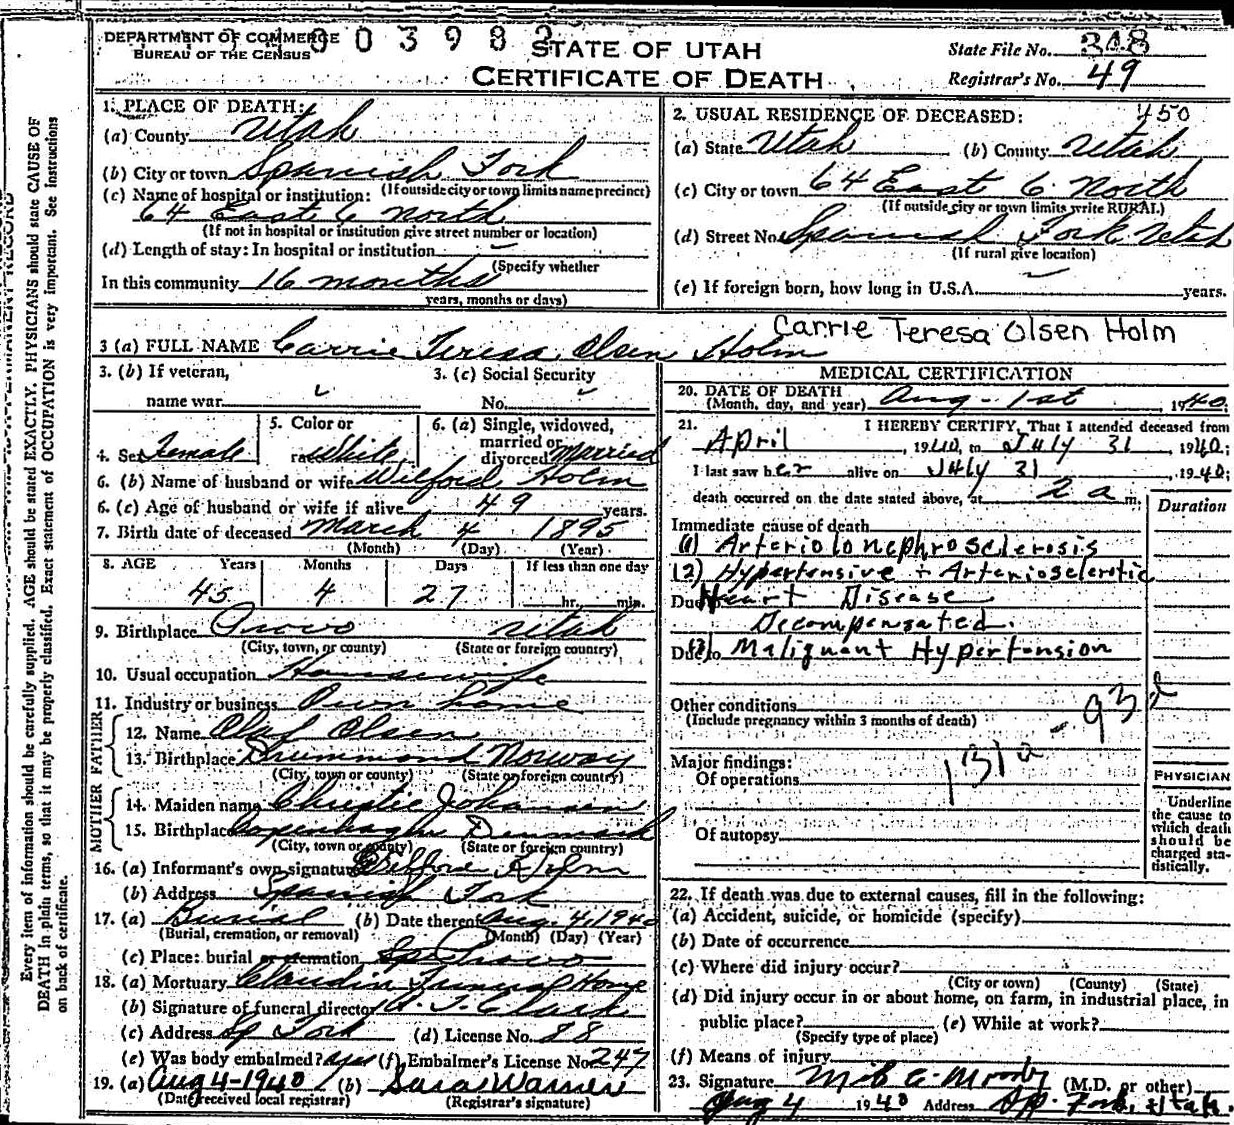 DEPARTMENT OF COMMERCE
BUREAU OF THE CENSUS
003982
STATE OF UTAH
CERTIFICATE OF DEATH
State File No. 308
Registrar's No. 49
Every item of information should be carefully supplied. AGE should be stated EXACTLY. PHYSICIANS should state CAUSE OF
DEATH in plain terms, so that it may be properly classified. Exact statement of OCCUPATION is very important. See instructions
on back of certificate.
1. PLACE OF DEATH:
(a) County Utah
(b) City or town Spanish Fork
(If outside city or town limits name precinct)
(c) Name of hospital or institution:
64 East 6 North
(If not in hospital or institution give street number or location)
(d) Length of stay: In hospital or institution
(Specify whether
In this community 16 months
years, months or days)
2. USUAL RESIDENCE OF DECEASED: 450
(a) State Utah (b) County Utah
(c) City or town 64 East 6 North
(If outside city or town limits write RURAL)
(d) Street No. Spanish Fork Utah
(If rural give location)
(e) If foreign born, how long in U.S.A. years.
3 (a) FULL NAME Carrie Teresa Olsen Holm
Carrie Teresa Olsen Holm
3. (b) If veteran,
name war
3. (c) Social Security
No.
4. Sex Female
5. Color or
race White
6. (a) Single, widowed,
married or
divorced Married
6. (b) Name of husband or wife Wilford Holm
6. (c) Age of husband or wife if alive 49 years.
7. Birth date of deceased March 4 1895
(Month) (Day) (Year)
8. AGE Years Months Days If less than one day
45 4 27 hr. min.
9. Birthplace Provo Utah
(City, town, or county) (State or foreign country)
10. Usual occupation Housewife
11. Industry or business Own home
FATHER
12. Name Olaf Olsen
13. Birthplace Drummond Norway
(City, town or county) (State or foreign country)
MOTHER
14. Maiden name Christie Johansen
15. Birthplace Copenhaghn Denmark
(City, town or county) (State or foreign country)
16. (a) Informant's own signature Wilford Holm
(b) Address Spanish Fork
17. (a) Burial (b) Date thereof Aug. 4, 1940
(Burial, cremation, or removal) (Month) (Day) (Year)
(c) Place: burial or cremation Provo
18. (a) Mortuary Claudin Funeral Home
(b) Signature of funeral director Clark
(c) Address Sp Fork (d) License No. 88
(e) Was body embalmed? yes (f) Embalmer's License No. 247
19. (a) Aug 4-1940 (b) Sara Warner
(Date received local registrar) (Registrar's signature)
MEDICAL CERTIFICATION
20. DATE OF DEATH
(Month, day, and year) Aug. 1st 1940.
21. I HEREBY CERTIFY, That I attended deceased from
April, 1940, to July 31 1940;
I last saw her alive on July 31, 1940;
death occurred on the date stated above, at 2 a m.
Duration
Immediate cause of death
(1) Arteriolonephrosclerosis
(2) Hypertensive + Arteriosclerotic
Due to Heart Disease
Decompensated.
Due to (3) Malignant Hypertension
Other conditions
(Include pregnancy within 3 months of death)
131a - 93d
Major findings:
Of operations
Of autopsy
PHYSICIAN
Underline
the cause to
which death
should be
charged sta-
tistically.
22. If death was due to external causes, fill in the following:
(a) Accident, suicide, or homicide (specify)
(b) Date of occurrence
(c) Where did injury occur?
(City or town) (County) (State)
(d) Did injury occur in or about home, on farm, in industrial place, in
public place? (e) While at work?
(Specify type of place)
(f) Means of injury
23. Signature Moody (M.D. or other)
Aug 4 1940 Address Sp. Fork, Utah.